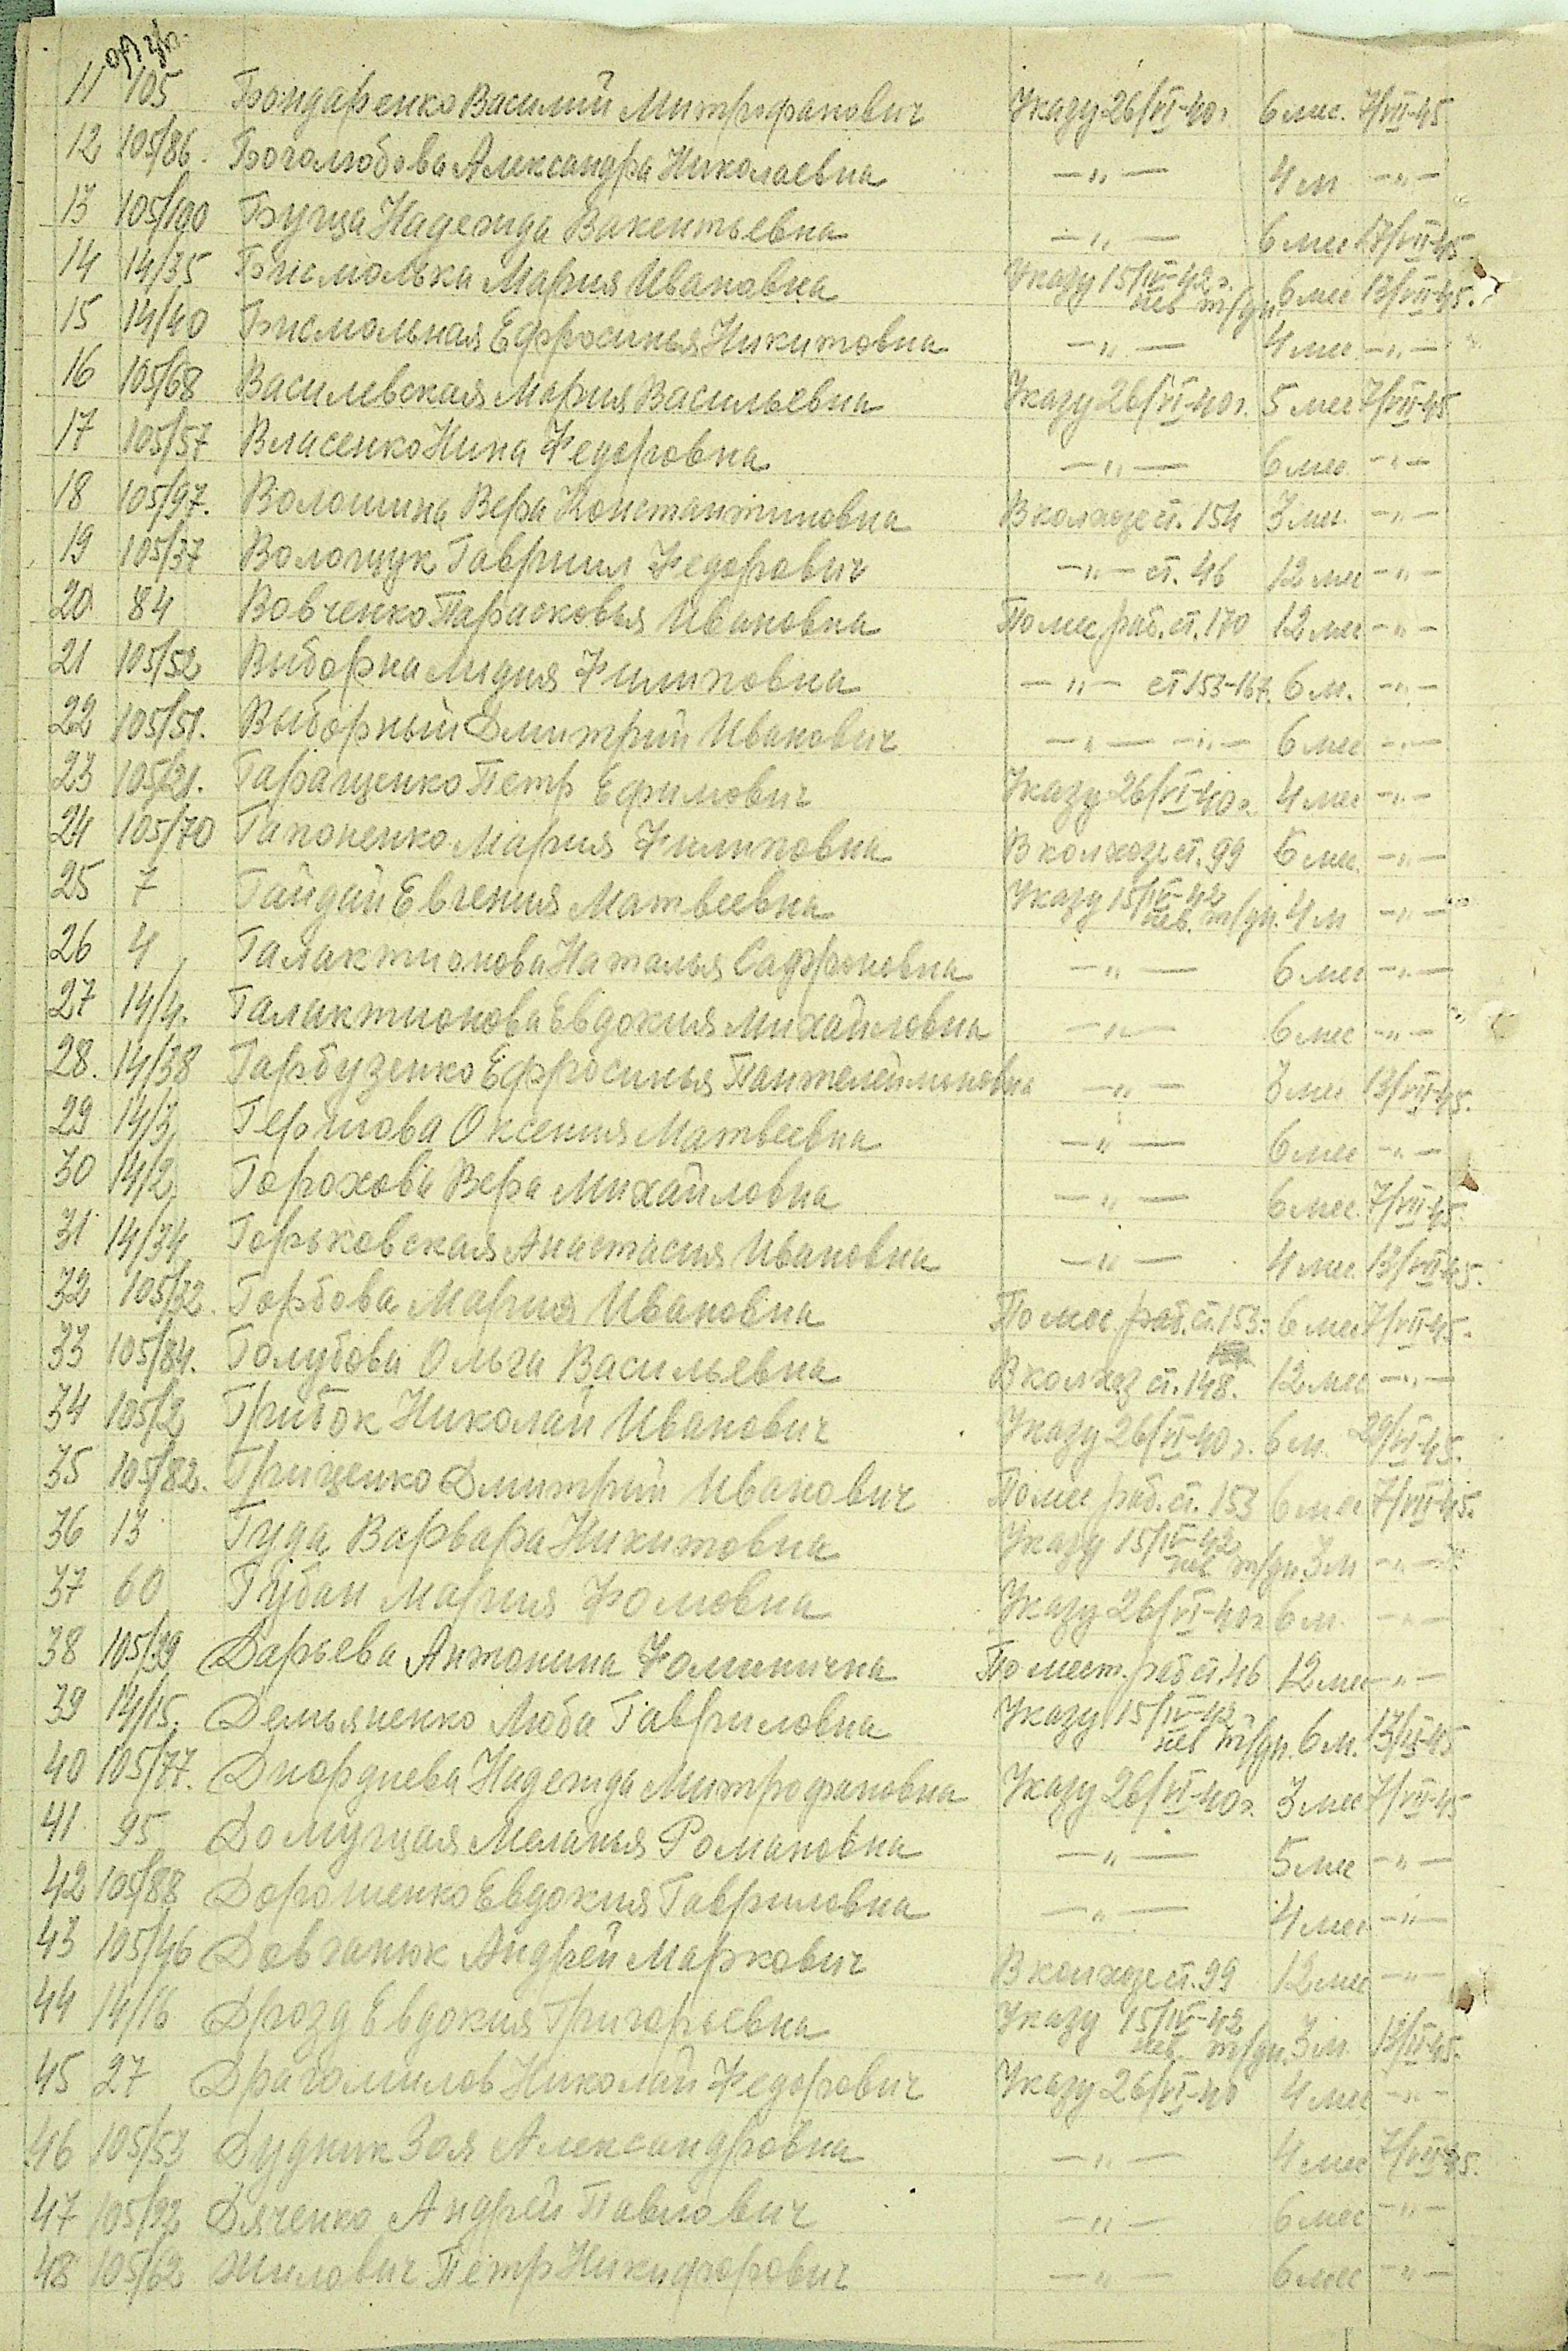 11 105 Бондаренко Василий Митрофанович Указу 26/VI-40г 6 мес. 7/VII-45
12 105/86. Боголюбова Александра Николаевна —"— 4 м —"—
13 105/100 Бугца Надежда Викентьевна —"— 6 мес 17/VII-45.
14 14/35 Бисмолька Мария Ивановна Указу 15/IV-42г. нев т/дн. 6 мес 13/VII-45.
15 14/40 Бисмольная Ефросинья Никитовна —"— 4 мес —"—
16 105/68 Василевская Мария Васильевна Указу 26/VI-40г. 5 мес 7/VII-45.
17 105/57 Власенко Нина Федоровна —"— 6 мес. —"—
18 105/97. Волошина Вера Константиновна В колхозе ст. 154 3 мес. —"—
19 105/37 Волощук Гавриил Федорович —"— ст. 46 12 мес —"—
20 84 Вовченко Парасковья Ивановна По мес раб. ст. 170 12 мес —"—
21 105/52 Выборна Лидия Филиповна —"— ст 153-167. 6 м. —"—
22 105/51. Выборный Дмитрий Иванович —"— —"— 6 мес —"—
23 105/21. Гаращенко Петр Ефимович Указу 26/VI-40г. 4 мес —"—
24 105/70 Гапоненко Мария Филиповна В колхозе ст. 99 6 мес. —"—
25 7 Гайдай Евгения Матвеевна Указу 15/IV-42 нев. т/дн. 4 м —"—
26 4 Галактионова Наталья Сафроновна —"— 6 мес —"—
27 14/4. Галактионова Евдокия Михайловна —"— 6 мес —"—
28. 14/38 Гарбузенко Ефросинья Пантелеймоновна —"— 3 мес 13/VII-45.
29 14/3 Герцова Оксения Матвеевна —"— 6 мес —"—
30 14/2 Горохова Вера Михайловна —"— 6 мес. 7/VII-45.
31 14/34 Горьковская Анастасия Ивановна —"— 4 мес. 13/VII-45.
32 105/32. Горбова Мария Ивановна По мес. раб. ст. 153- 6 мес 7/VII-45.
33 105/84. Голубова Ольга Васильевна В колхоз ст. 148. 12 мес —"—
34 105/2 Грибок Николай Иванович Указу 26/VI-40г. 6 м. 29/VI-45.
35 105/82. Гриценко Дмитрий Иванович По мес раб. ст. 153 6 мес 7/VII-45.
36 13 Гуда Варвара Никитовна Указу 15/IV-42 нев т/дн. 3 м —"—
37 60 Губан Мария Фомовна Указу 26/VI-40г 6 м. —"—
38 105/39 Дарьева Антонина Фоминична По мест. раб ст. 46 12 мес —"—
39 14/15. Демьяненко Люба Гавриловна Указу 15/IV-42г нев т/дн. 6 м. 13/VII-45
40 105/77. Диордиева Надежда Митрофановна Указу 26/VI-40г. 3 мес 7/VII-45
41 95 Домущая Меланья Романовна —"— 5 мес —"—
42 105/88 Дорошенко Евдокия Гавриловна —"— 4 мес —"—
43 105/46 Довганюк Андрей Маркович В колхозе ст. 99 12 мес —"—
44 14/16 Дрозд Евдокия Григорьевна Указу 15/IV-42 нев т/дн. 3 м. 13/VII-45.
45 27 Драгомилов Николай Федорович Указу 26/VI-40 4 мес —"—
46 105/53 Дудник Зоя Александровна —"— 4 мес 7/VII-45.
47 105/92 Дяченко Андрей Павлович —"— 6 мес —"—
48 105/62 Жилович Петр Никифорович —"— 6 мес —"—